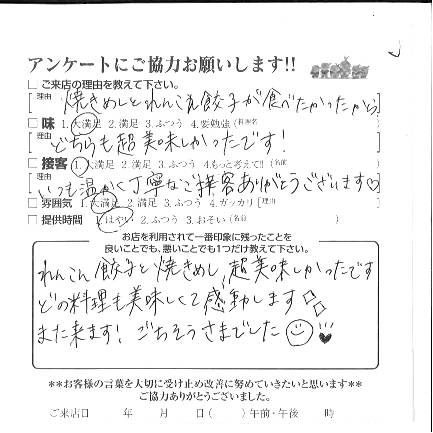 アンケートにご協力お願いします!!
□ ご来店の理由を教えて下さい。
[理由 焼きめしとれんこん餃子が食べたかったから]
□ 味 1.大満足 2.満足 3.ふつう 4.要勉強 (料理名 )
[理由 どちらも超美味しかったです! ]
□ 接客 1.大満足 2.満足 3.ふつう 4.もっと考えて!! (名前 )
[理由 いつも温かく丁寧なご接客ありがとうございます♡]
□ 雰囲気 1.大満足 2.満足 3.ふつう 4.ガッカリ [理由 ]
□ 提供時間 1.はやい 2.ふつう 3.おそい (名前 )
お店を利用されて一番印象に残ったことを
良いことでも、悪いことでも1つだけ教えて下さい。
れんこん餃子と焼きめし、超美味しかったです
どの料理も美味しくて感動します
また来ます! ごちそうさまでした
**お客様の言葉を大切に受け止め改善に努めていきたいと思います**
ご協力ありがとうございました。
ご来店日 年 月 日( ) 午前・午後 時